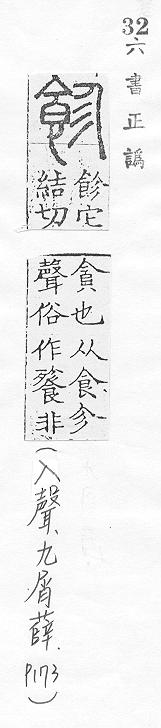 32
六書正譌
飻
飻它
結切
貪也从食㐱
聲俗作餮非
(入聲、九屑薛、P173)